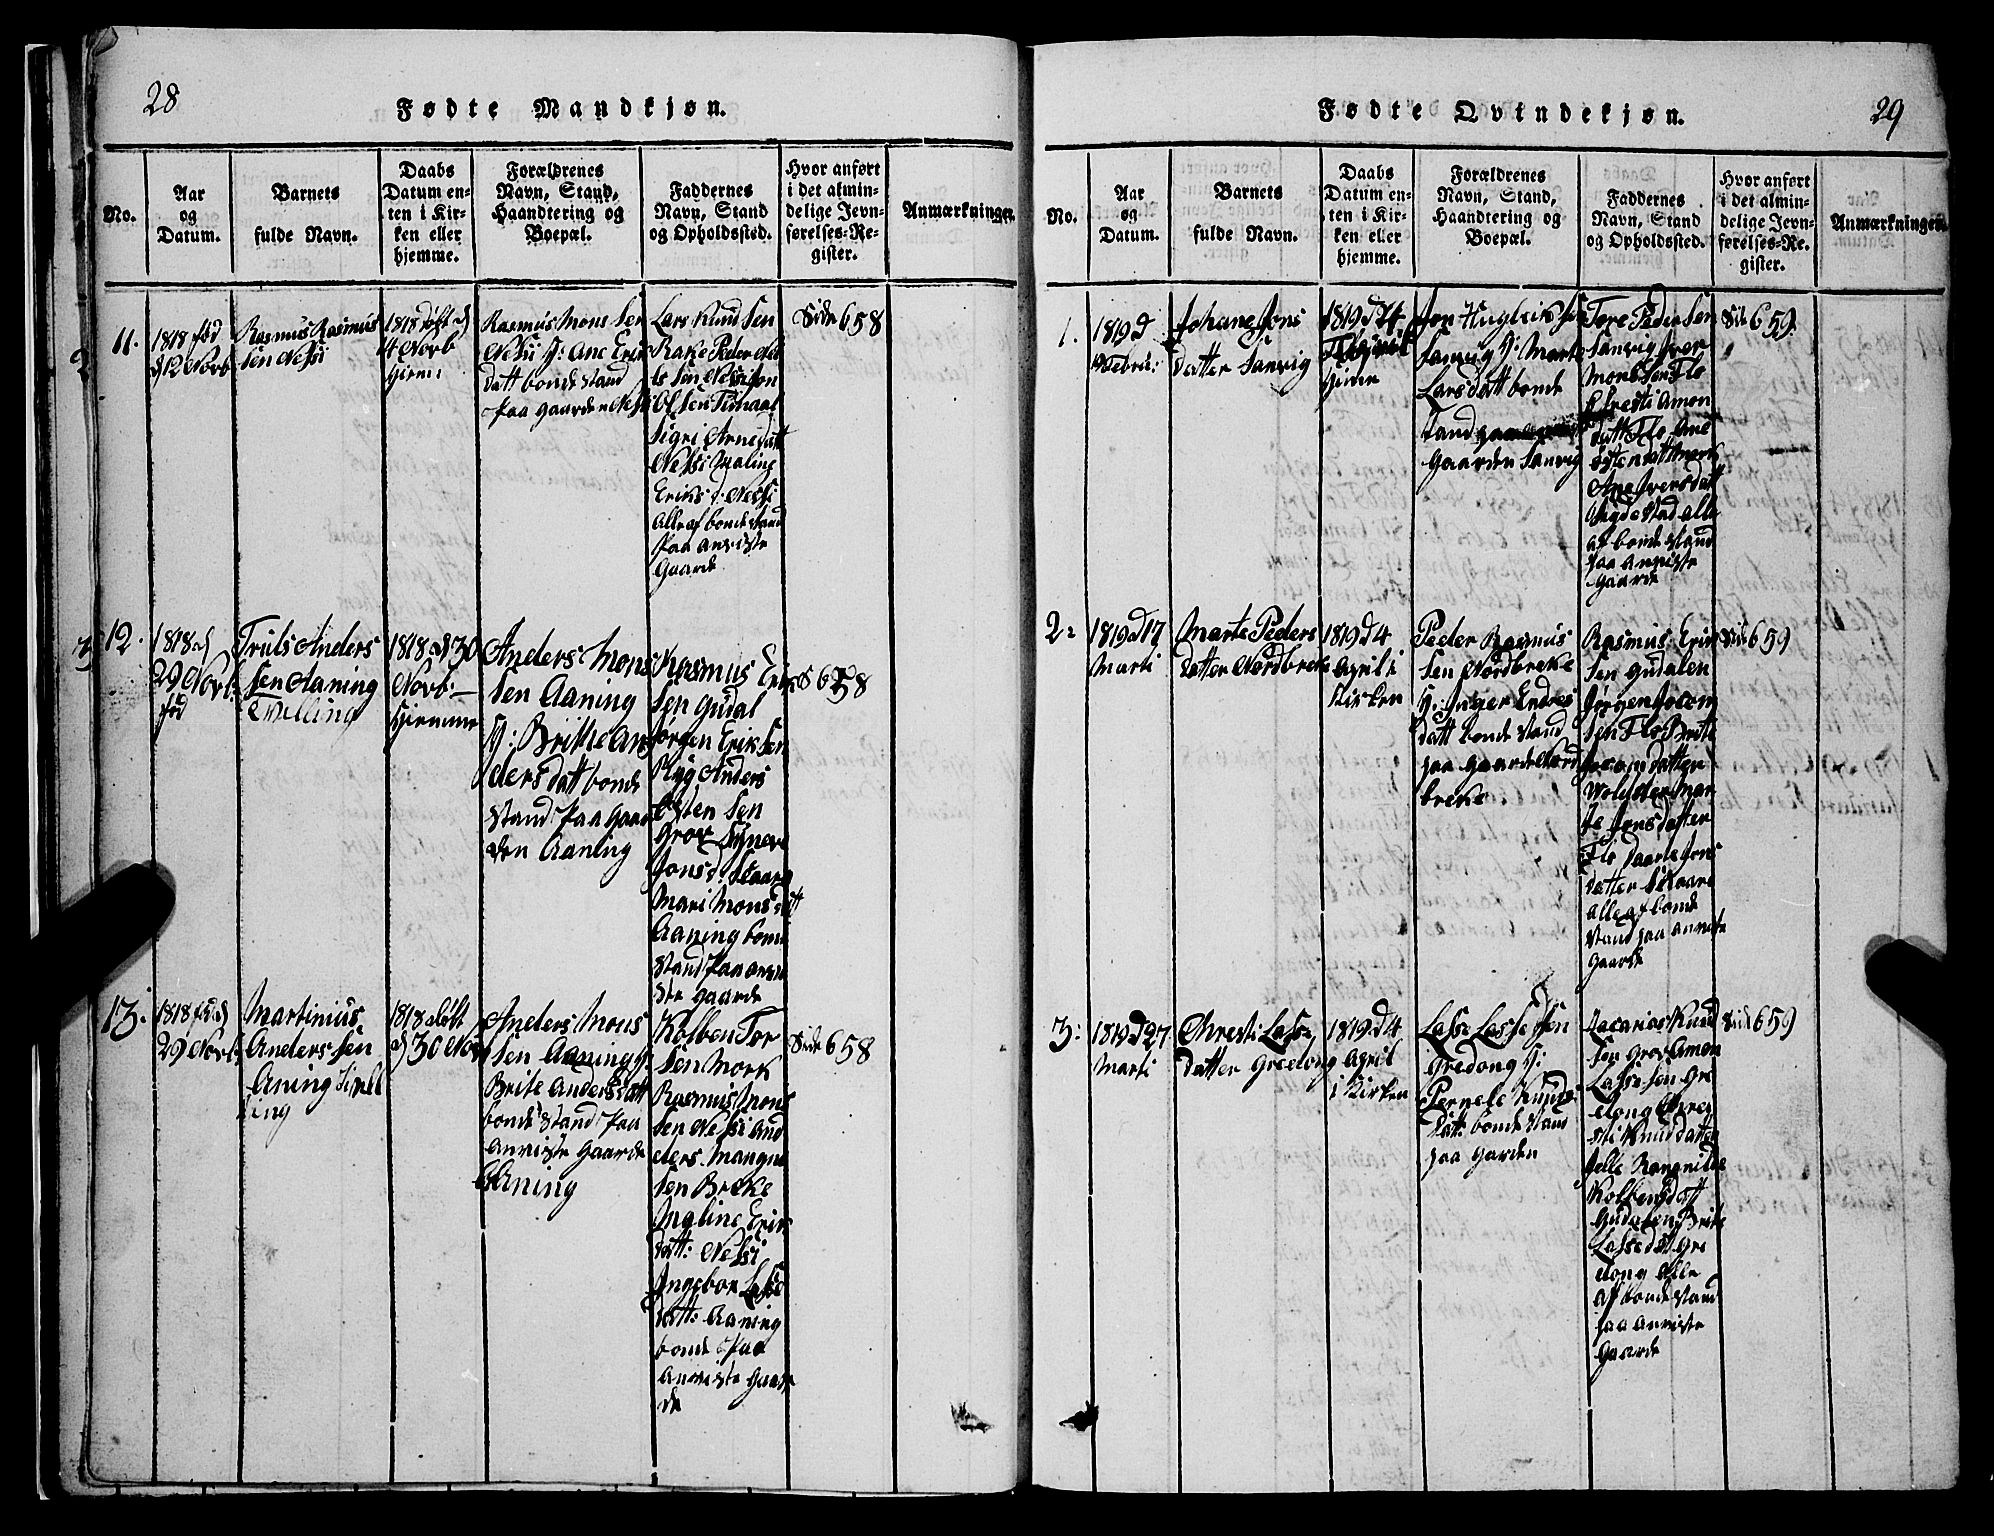 28
Fødte Mandkjøn.
No.
Aar
og
Datum.
Barnets
fulde Navn.
Daabs
Datum en-
ten i Kir-
ken eller
hjemme.
Forældrenes
Navn, Stand,
Haandtering og
Boepæl.
Faddernes
Navn, Stand
og Opholdssted.
Hvor anført
i det almin-
delige Jevn-
førelses-Re-
gister.
Anmærkninger.
11.
1818 fød
d 12 Novb
Rasmus Rasmus
sen Nessi
1818 døbt d
Novb
hiem
Rasmus Mons Sen
Nessi H: Ane Erik
datt bonde stand
paa gaarden Nessi
Lars Knud Sen
Rake Peder
Sen Nessi Jon
Ol Sen Timaal
Sigri Arnedatt
Nessi Maline
Eriks d: Nessi
Alle af bonde stand
paa anviste
Gaarde
Side 658
12.
1818 d
29 Novb:
fød
Truls Anders
Sen Aaning
Tvilling
1818 d 30
Novb:
hiemme
Anders Mons
Sen Aaning
H: Brithe An
dersdatt bonde
stand paa gaar
den Aaning
Rasmus Erik
Sen Gudal
Jørgen Erik Sen
Ryg Anders
Østen Sen
Grov Synneve
Jonsd: Skaare
Mari Mons datt
Aaning bonde
stand paa anvi
ste gaarde
S 658
13.
1818 fød
29 Novb:
Martinius
Anders Sen
Aning Tvill
ing
1818 døbt
d 30 Nov
Anders Mons
Sen Aaning H:
Brite Andersdatt
bonde stand paa
anviste gaarde
Aaning
Kolben Tor
Sen Mork
Rasmus Mons
Sen Nessi And
ders Mangne
Sen Breke
Maline Erik
datt: Nessi
Ingebor Lasse
datt: Aaning
bonde paa
anviste Gaar
de
Side 658
29
Fødte Qvindekjøn.
No.
Aar
og
Datum.
Barnets
fulde Navn.
Daabs
Datum en-
ten i Kir-
ken eller
hjemme.
Forældrenes
Navn, Stand,
Haandtering og
Boepæl.
Faddernes
Navn, Stand
og Opholdssted.
Hvor anført
i det almin-
delige Jevn-
førelses-Re-
gister.
Anmærkninger.
1.
1819 d
Febru:
Johane Jons
datter Sanvig
1819 d 14
Jon Hugleik Sen
Sanvig H: Marte
Larsdatt bonde
stand
Gaarden Sanvig
Tore Peder Sen
Sanvig Iver
Mons Sen Flo
Kresti Amon
datt Flo Ane
Østendatt Mork
Ane Iversdatt
alle
af bonde stand
paa anviste
gaarde
Side 659
2:
1819 d 17
Marti
Marte Peders
datter Nordbreke
1819 d 4
April i
Kirken
Peder Rasmus
Sen Nordbreke
H: Inger Endres
datt bonde stand
paa Gaarde Nord
breke.
Rasmus Erik
Sen Gudalen
Jørgen Jocum
Sen Flo Brite
Jocumdatter
Mar
te Jonsdatter
Flo Daarte Jons
datter Skaare
alle af bonde
stand paa anviste
gaarde
Side 659
3:
1819 d 27
Marti
Chresti Lasse
datter Greedong
1819 d 4
April
i Kirken
Lasse Lasse Sen
Gredong H:
Pernele Knuds
datt: bonde stand
paa Garden
Zacarias Knud
Sen Grov Amon
Lasse Sen Gre
dong Chre
sti Knuddatter
Rangnilde
Kolbensdatt
Gudalen Brite
Lassedatt Gre
dong Alle
af bonde stand
paa anviste
Gaarde
Side 659